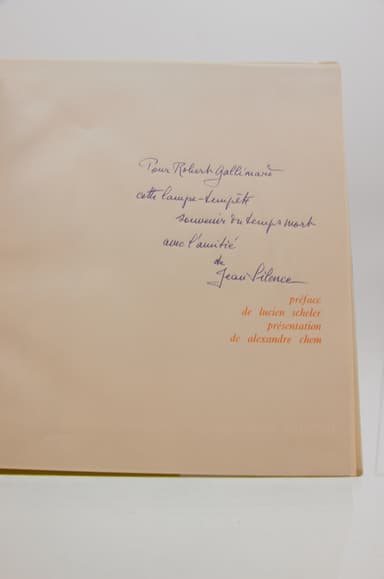 Pour Robert Gallimard
cette lampe-tempête
souvenir du temps mort
avec l'amitié
de
Jean Silence
préface
de lucien scheler
présentation
de alexandre chem